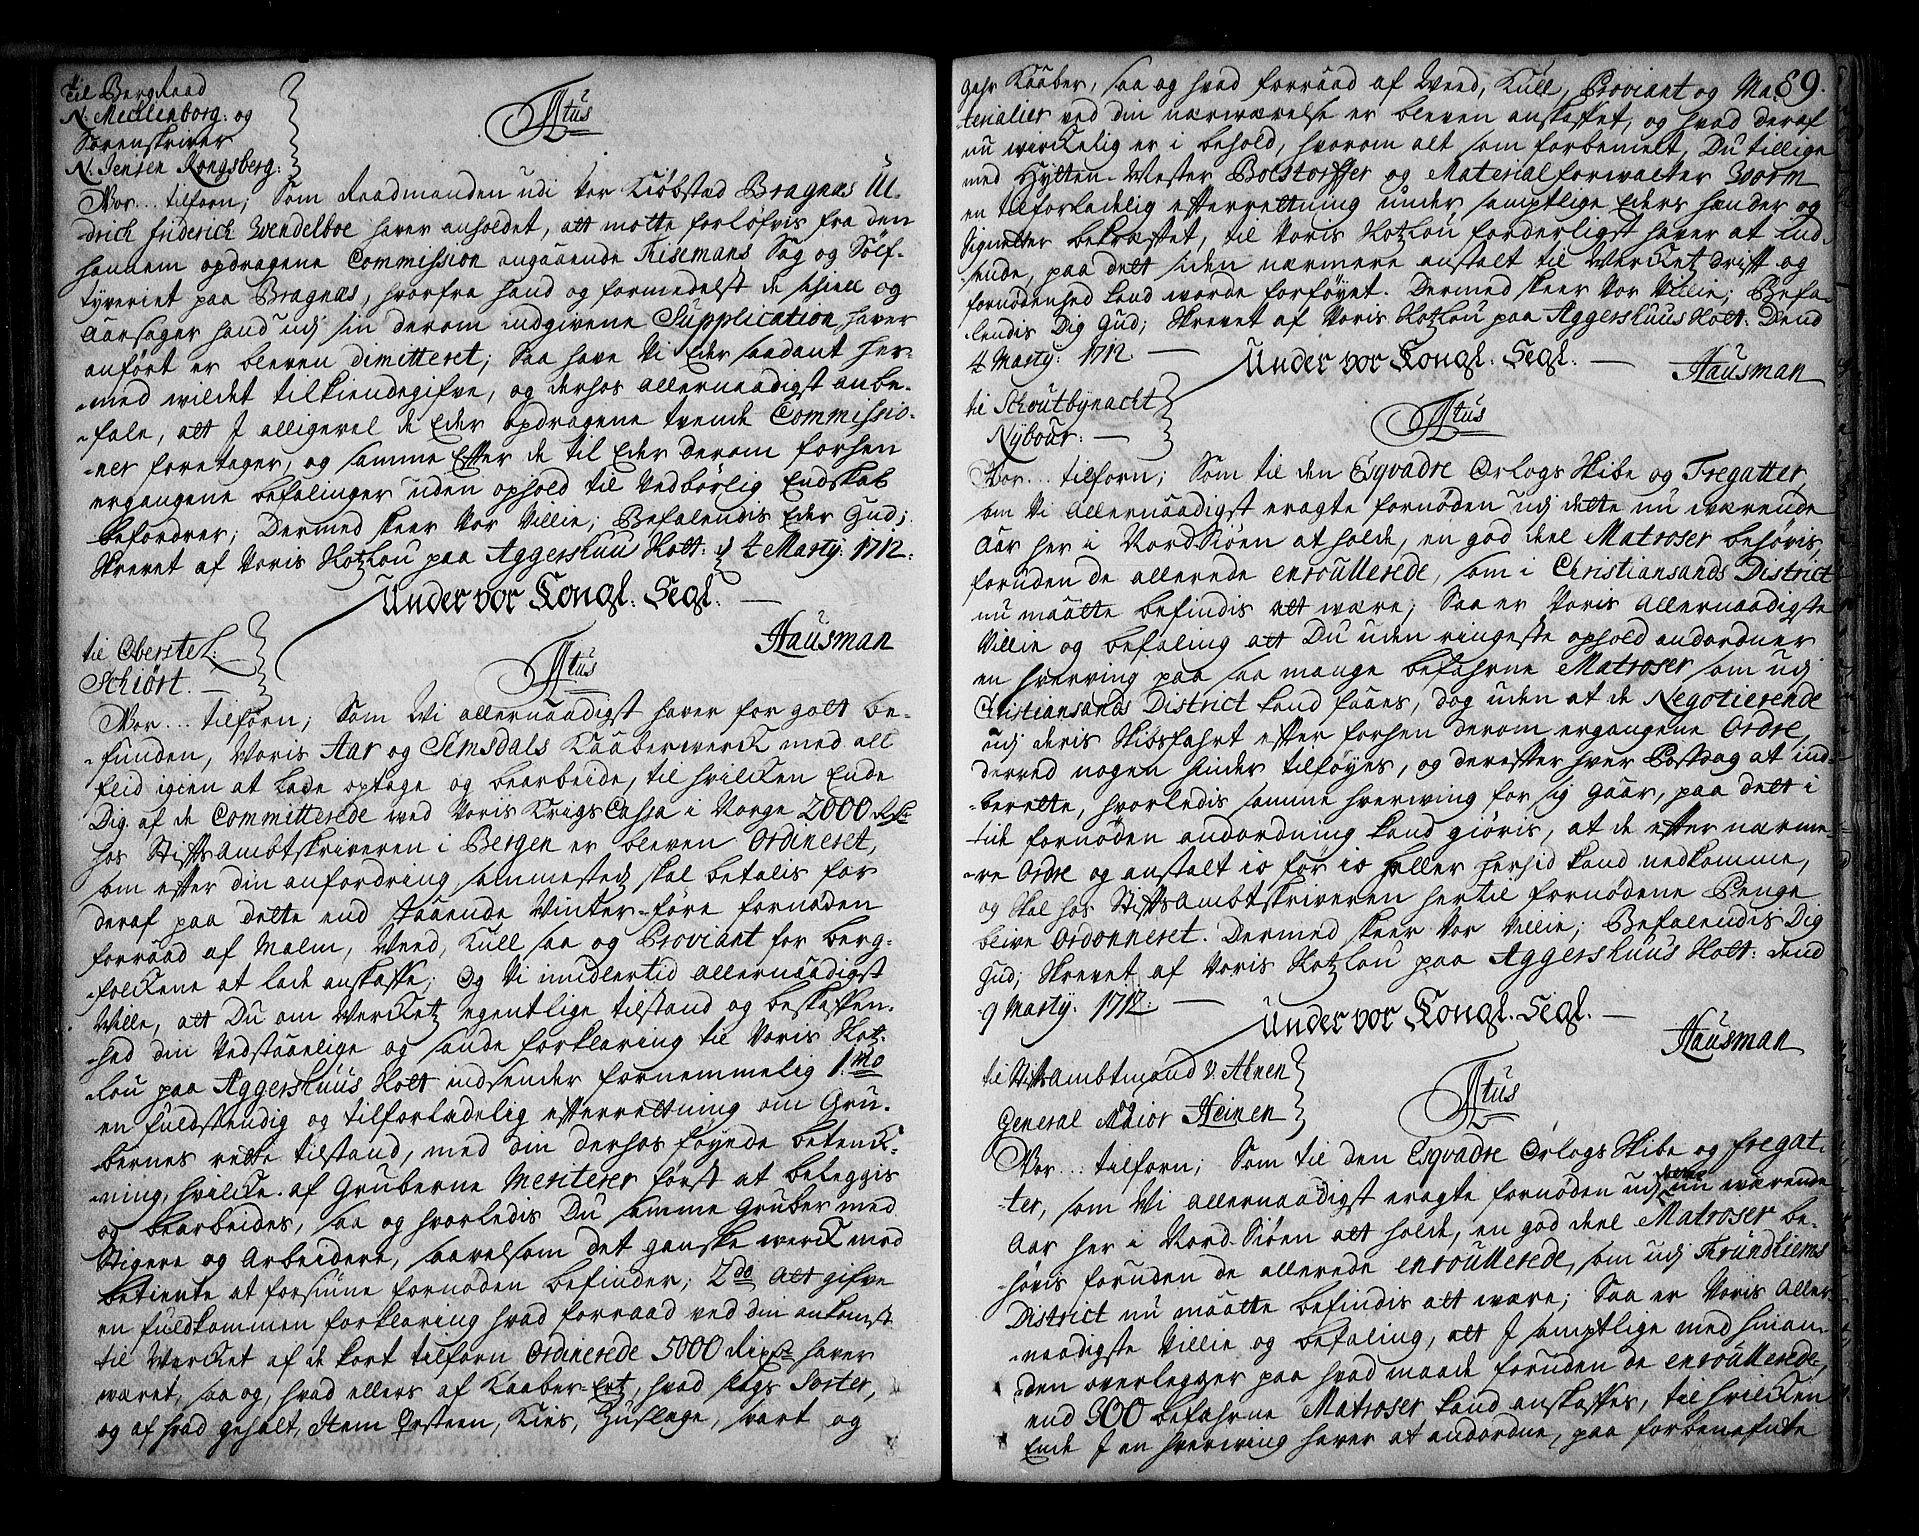 Til BergRaad
N. Mechlenborg: og
Sorenskriver
N. Jensen Kongsberg:
Vor... tilforn; Som Raadmanden udi vor Kiöbstad Bragnæs Ul-
drich Friderich Wendelboe haver anholdet, att motte forlöfvis fra den
hannem opdragene Commission angaaende Tisemans Sag og Sölf-
tyveriet paa Bragnæs, hvorfra hand og formedelst de skiell og
Aarsager hand udj sin derom indgivene Supplication, haver
anfört er bleven dimitteret; Saa have Vi Eder saadant her-
-med vildet tilkiendegifve, og derhos allernaadigst anbe-
-fale, att I alligevel de Eder opdragene tvende Commissio-
-ner foretager, og samme Efter de til Eder derom forhen
ergangene befalinger uden ophold til vedbörlig Endskab
befordrer; Dermed skeer Vor Villie; Befalendis Eder Gud;
Skrevet af Voris Hotzlou paa Aggershuu Slott: d 4 Martij: 1712:
Under vor Kongl. Segl. —
Hausman
til Oberste L:
Schiört. —
Vor... tilforn; Som Wi allernaadigst haver for godt be-
-funden, Voris Aar og Semsdals Kaaberwerck med all
fleid igien at lade optage og bearbeide, til hvilcken Ende
Dig af de Committerede ved Voris Krigs Cassa i Norge 2000 Rdr
hos Stiftsambtskriveren i Bergen er bleven Ordineret,
som efter din anfordring sammesteds skal betalis for
deraf paa dette end staaende Winter-före fornöden
forraad af Malm, Weed, Kull saa og Proviant for berg-
-folckene at lade anskaffe; Og Vi imidlertid allernaadigst
Ville, att Du om Werckets egentlige tilstand og beskaffen-
-hed din Vedstaaelige og sande forklaring til Voris Hotz-
-lou paa Aggershuus Slott indsender fornemmelig 1.mo
en fuldstendig og tilforladelig efterretning om Gru-
-bernes rette tilstand, med din derhos föyende betenck-
-ning, hvilcke af Gruberne meriterer först at beleggis
og bearbeides, saa og hvorledis Du samme Gruber med
Stigere og Arbeidere, saavelsom det ganske werck med
betiente at forsiune fornöden befinder; 2do Att gifve
en fuldkommen forklaring hvad forraad ved din ankomst
til Wercket af de kort tilforn Ordinerede 5000 Rixdr haver
wæret, saa og, hvad ellers af Kaaber-Ertz, hvad slags Sorter,
og af hvad gehalt, Item Kies, svart og
89.
gahr Kaaber, saa og hvad forraad af Weed, Kull, Proviant og Ma-
terialier ved din nærværelse er bleven anskaffet, og hvad deraf
nu wirckelig er i behold, hvorom alt som forbemelt, Du tillige
med Hytten-Mester Bolstorffer og Materialforwalter Worm
en tilforladelig efterretning under samptlige Eders hænder og
Signetter bekræftet, til Voris Hotzlou forderligst haver at ind-
sende, paa dett siden nærmere anstalt til Werckets drift og
fornödenhed kand worde forföyet. Dermed skeer Vor Villie; Befa-
lendis Dig Gud; Skrevet af Voris Hotzlou paa Aggershuus Slott: Dend
4 Martij: 1712 —
Under vor Kongl. Segl. —
Hausman
til Schoutbynacht
Nybour: —
Vor... tilforn; Som til den Esqvadre Orlogs Skibe og Fregatter,
som Vi allernaadigst eragte fornöden udj dette nu værende
Aar her i NordSiöen at holde, en god deel Matroser behövis,
foruden de allerede enroullerede, som i Christiansands District
nu maatte befindis att være; Saa er Voris Allernaadigste
Villie og befaling att Du uden ringeste ophold anordner
en hverving paa saa mange befahrne Matroser som udj
Christiansands District kand faaes, dog uden at de Negotierende
udj deris Skibsfahrt efter forhen derom ergangene Ordre,
derved nogen hinder tilföyes, og derefter hver Postdag at ind-
-berette, hvorledis samme hverving for sig gaar, paa dett i
tide fornöden andordning kand giöris, at de efter nærme-
-re Ordre og anstalt io för io heller herhid kand nedkomme,
og skal hos Stiftsambtskriveren hertil fornödene Penge
blive Ordonneret. Dermed skeer Vor Villie; Befalendis Dig
Gud; Skrevet af Voris Hotzlou paa Aggershuus Slott: Dend
9 Martij: 1712: —
Under vor Kongl. Segl. —
Hausman
til Stiftsambtmand v. Ahnen
General Maior Heinen
Vor... tilforn; Som til den Esqvadre Orlogs Skibe og fregat-
-ter, som Vi allernaadigst eragte fornöden udj nu værende
Aar her i Nord-Siöen att holde, en god deel Matroser be-
-hövis foruden de allerede enroullerede, som udj Trundhiems
District nu maatte befindis att være; Saa er Voris Aller-
-naadigste Villie og befaling, att I samptlige med hinan-
-den overlegger paa hvad maade foruden de enroullerede,
end 300 befahrne Matroser kand anskaffes, til hvilcken
Ende I en hverving haver at andordne, paa forbenefnte